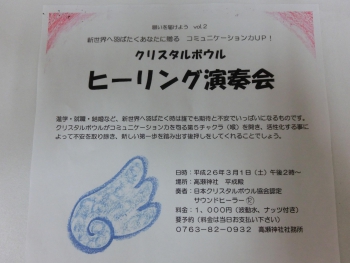 願いを届けよう vol.2
新世界へ羽ばたくあなたに贈る コミュニケーション力UP！
クリスタルボウル
ヒーリング演奏会
進学・就職・結婚など、新世界へ羽ばたく時は誰でも期待と不安でいっぱいになるものです。
クリスタルボウルがコミュニケーション力を司る第5チャクラ（喉）を開き、活性化する事に
よって不安を取り除き、新しい第一歩を踏み出す後押しをしてくれることでしょう。
日時：平成26年3月1日（土）午後2時～
場所：高瀬神社 平成殿
奏者：日本クリスタルボウル協会認定
サウンドヒーラー
料金：1，000円（波動水、ナッツ付き）
要予約（料金は当日お支払い下さい）
0763-82-0932 高瀬神社社務所